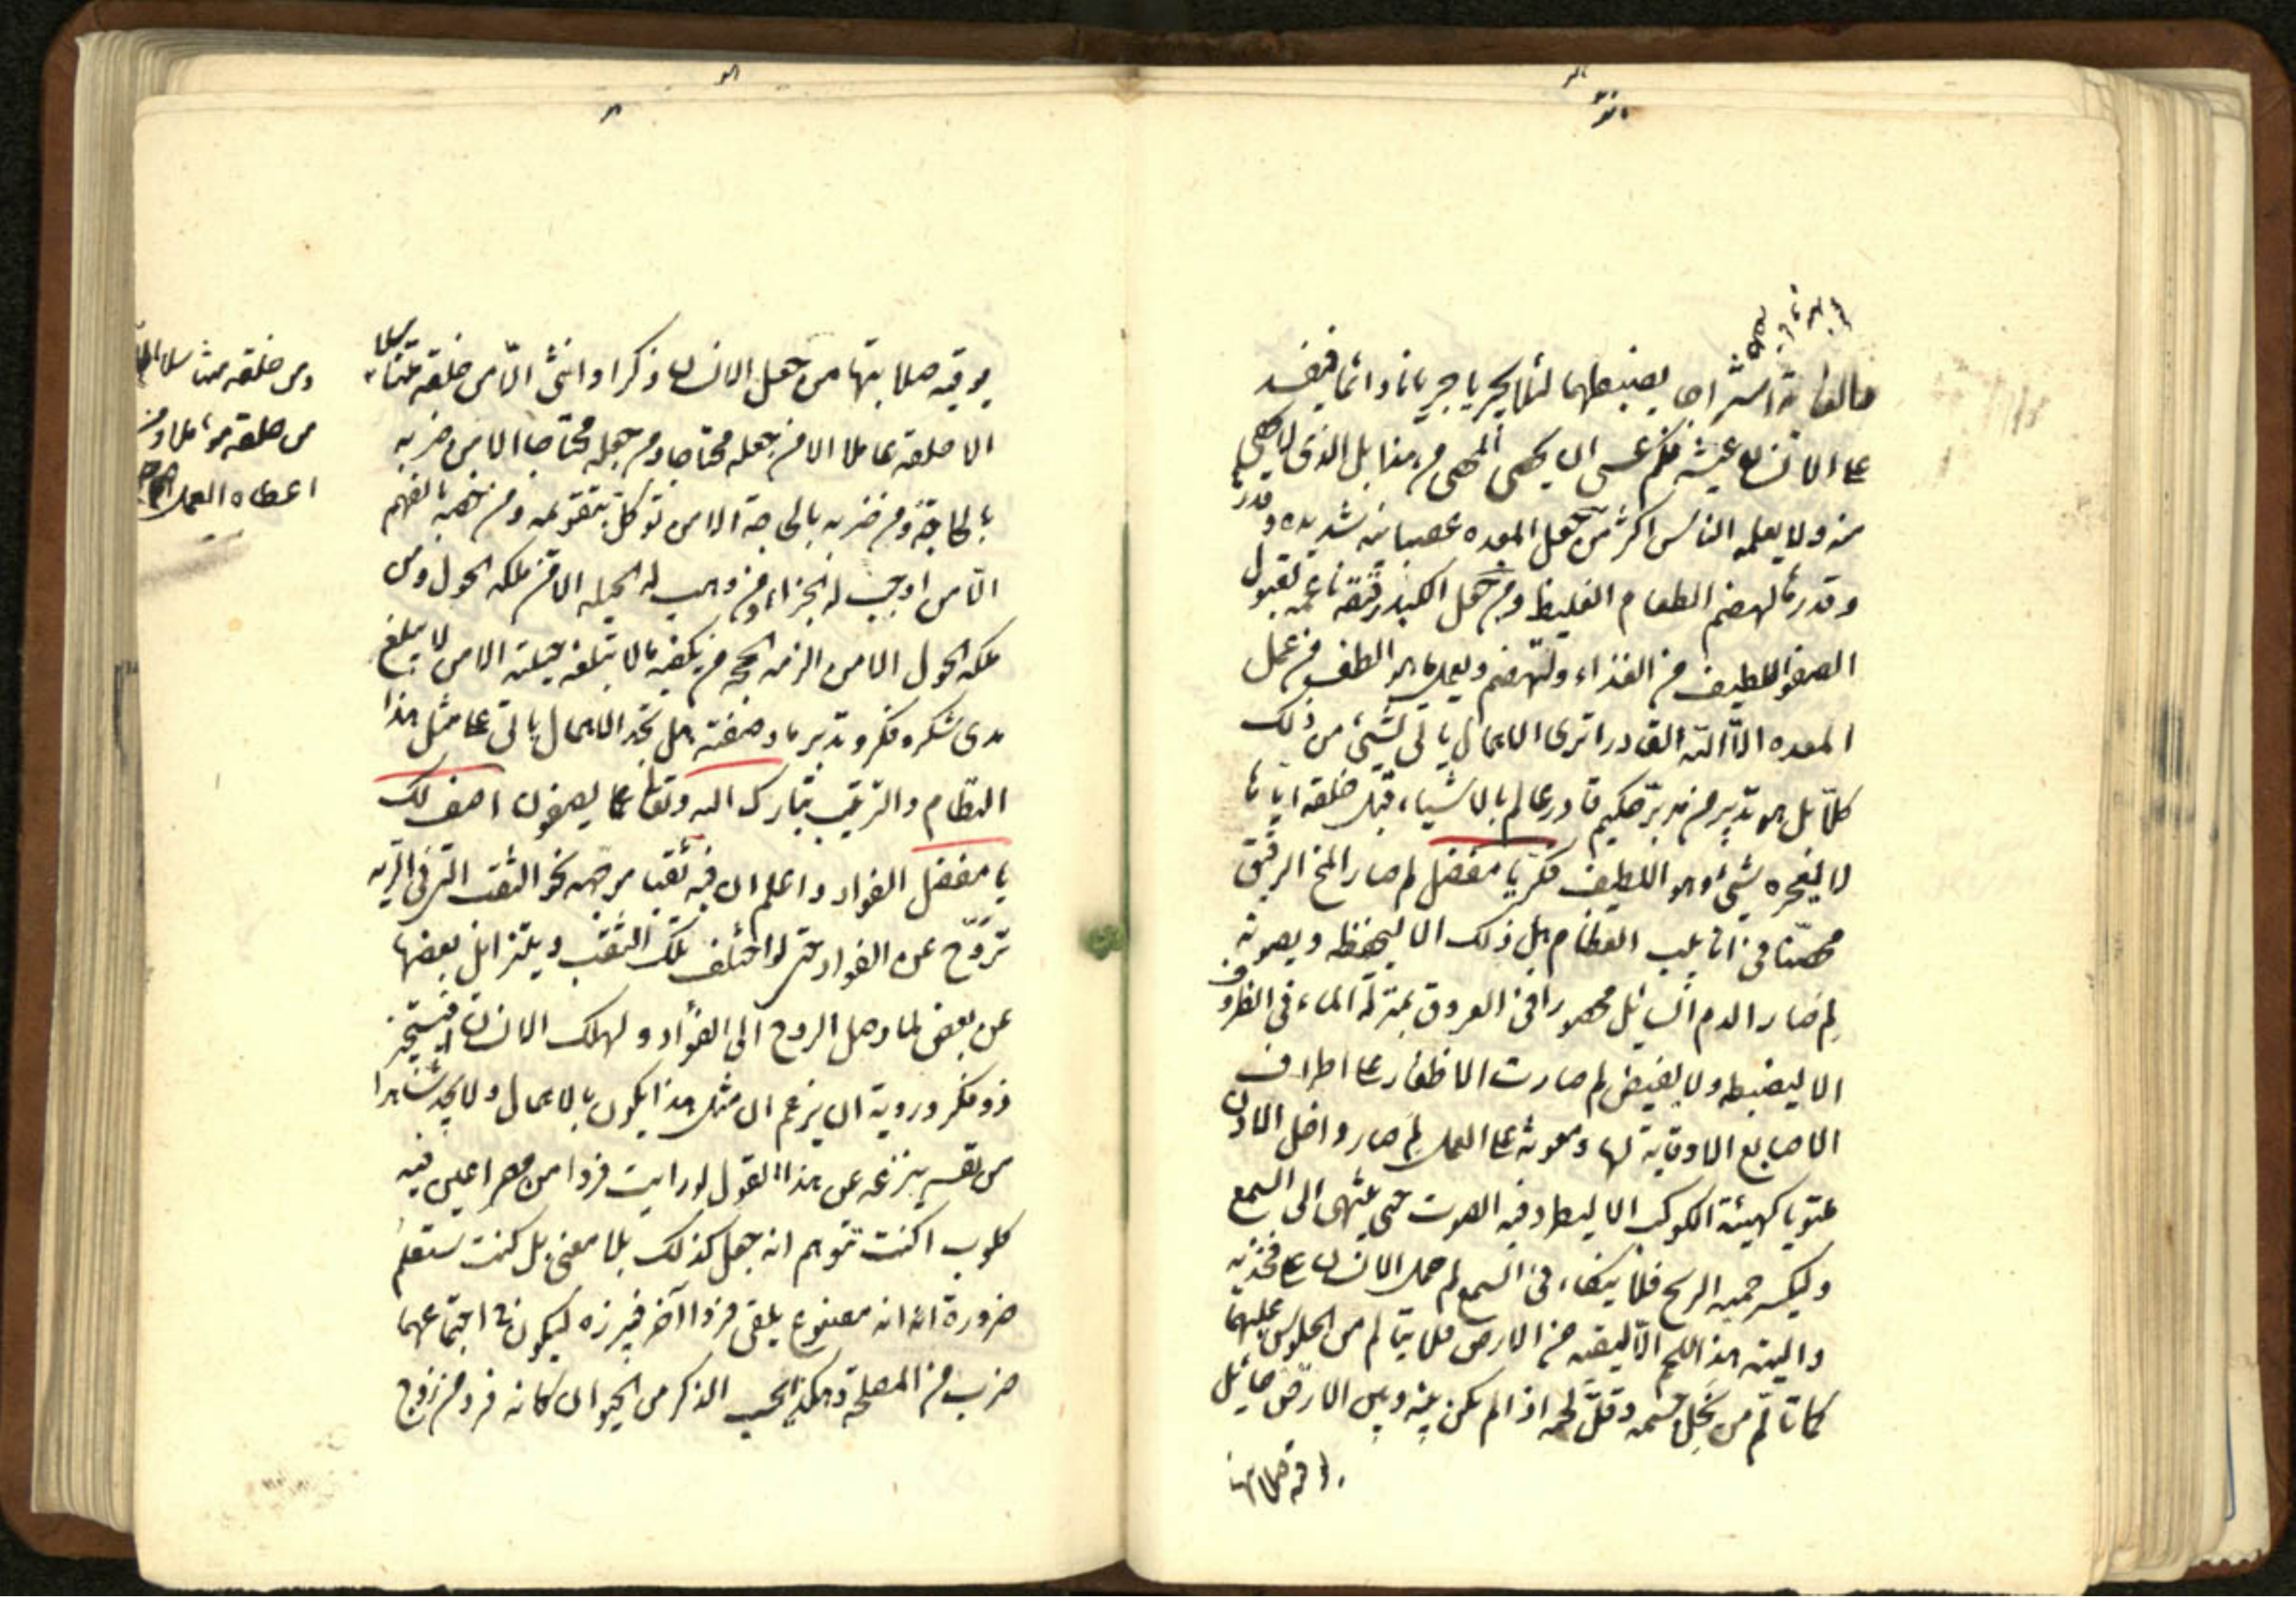 اشراجا يضبطهما لئلا يجريا جريانا دائما فيفسد
على الانسان عيشه فكم عسى ان يحصى المحصى من هذا بل الذى لا يحصى
منه ولا يعلمه الناس اكثر من جعل المعده عصبانيه شديده و قدرها
وقدرها لهضم الطعام الغليظ ومن جعل الكبد رقيقة ناعمه لقبول
الصفو اللطيف من الغذاء ولتهضم وتعمل ما هو الطف من عمل
المعده الا الله القادر اترى الاهمال ياتى بشئ من ذلك
كلا بل هو تدبير من مدبر حكيم قادر عالم بالاشياء قبل خلقه اياها
لا يعجزه شئ وهو اللطيف فكر يا مفضل لم صار المخ الرقيق
محصنا فى انابيب العظام هل ذلك الا ليحفظه ويصونه
لم صار الدم السائل محصورا فى العروق بمنزلة الماء فى الظروف
الا ليضبطه ولا يفيض لم صارت الاظفار على اطراف
الاصابع الا وقاية لها ومعونة على العمل لم صار داخل الاذن
ملتويا كهيئة الكوكب الا ليطرد فيه الصوت حتى ينتهى الى السمع
وليكسر حمية الريح فلا ينكاء فى السمع لم حمل الانسان على فخذيه
واليتيه هذا اللحم الا ليقيه من الارض فلا يتالم من الجلوس عليهما
كما تالم من نحل جسمه وقل لحمه اذا لم يكن بينه وبين الارض حائل
يوقيه صلابتها من جعل الانسان ذكرا وانثى الا من خلقه متناسلا
الا خلقه عاملا الا من جعله محتاجا ومن جعله محتاجا الا من ضربه
بالحاجة ومن ضربه بالحاجة الا من توكل بتقويمه ومن خصه بالفهم
الا من اوجب له الجزاء ومن وهب له الحيله الا من ملكه الحول ومن
ملكه الحول الا من الزمه الحجه من يكفيه ما لا تبلغه حيلته الا من لا يبلغ
مدى شكره فكر وتدبر ما وصفته هل تجد الاهمال ياتى على مثل هذا
النظام والترتيب تبارك الله وتعالى عما يصفون اصف لك
يا مفضل الفواد واعلم ان فيه ثقبا موجهه نحو الثقب التى فى الريه
تروح عن الفواد حتى لو اختلف تلك الثقب وتزايل بعضها
عن بعض لما وصل الروح الى الفؤاد ولهلك الانسان افيستجيز
ذو فكر وروية ان يزعم ان مثل هذا يكون بالاهمال ولا يجد شاهدا
من نفسه ينزعه عن هذا القول لو رايت فردا من مصراعين فيه
كلوب اكنت تتوهم انه جعل كذلك بلا معنى بل كنت ستعلم
ضرورة انه مصنوع يلقى فردا آخر فيبرزه ليكون فى اجتماعهما
ضرب من المصلحة وهكذا تجب الذكر من الحيوان كانه فرد من زوج
ومن خلقه متناسلا الا
من خلقه مؤملا ومن
اعطاه العمل